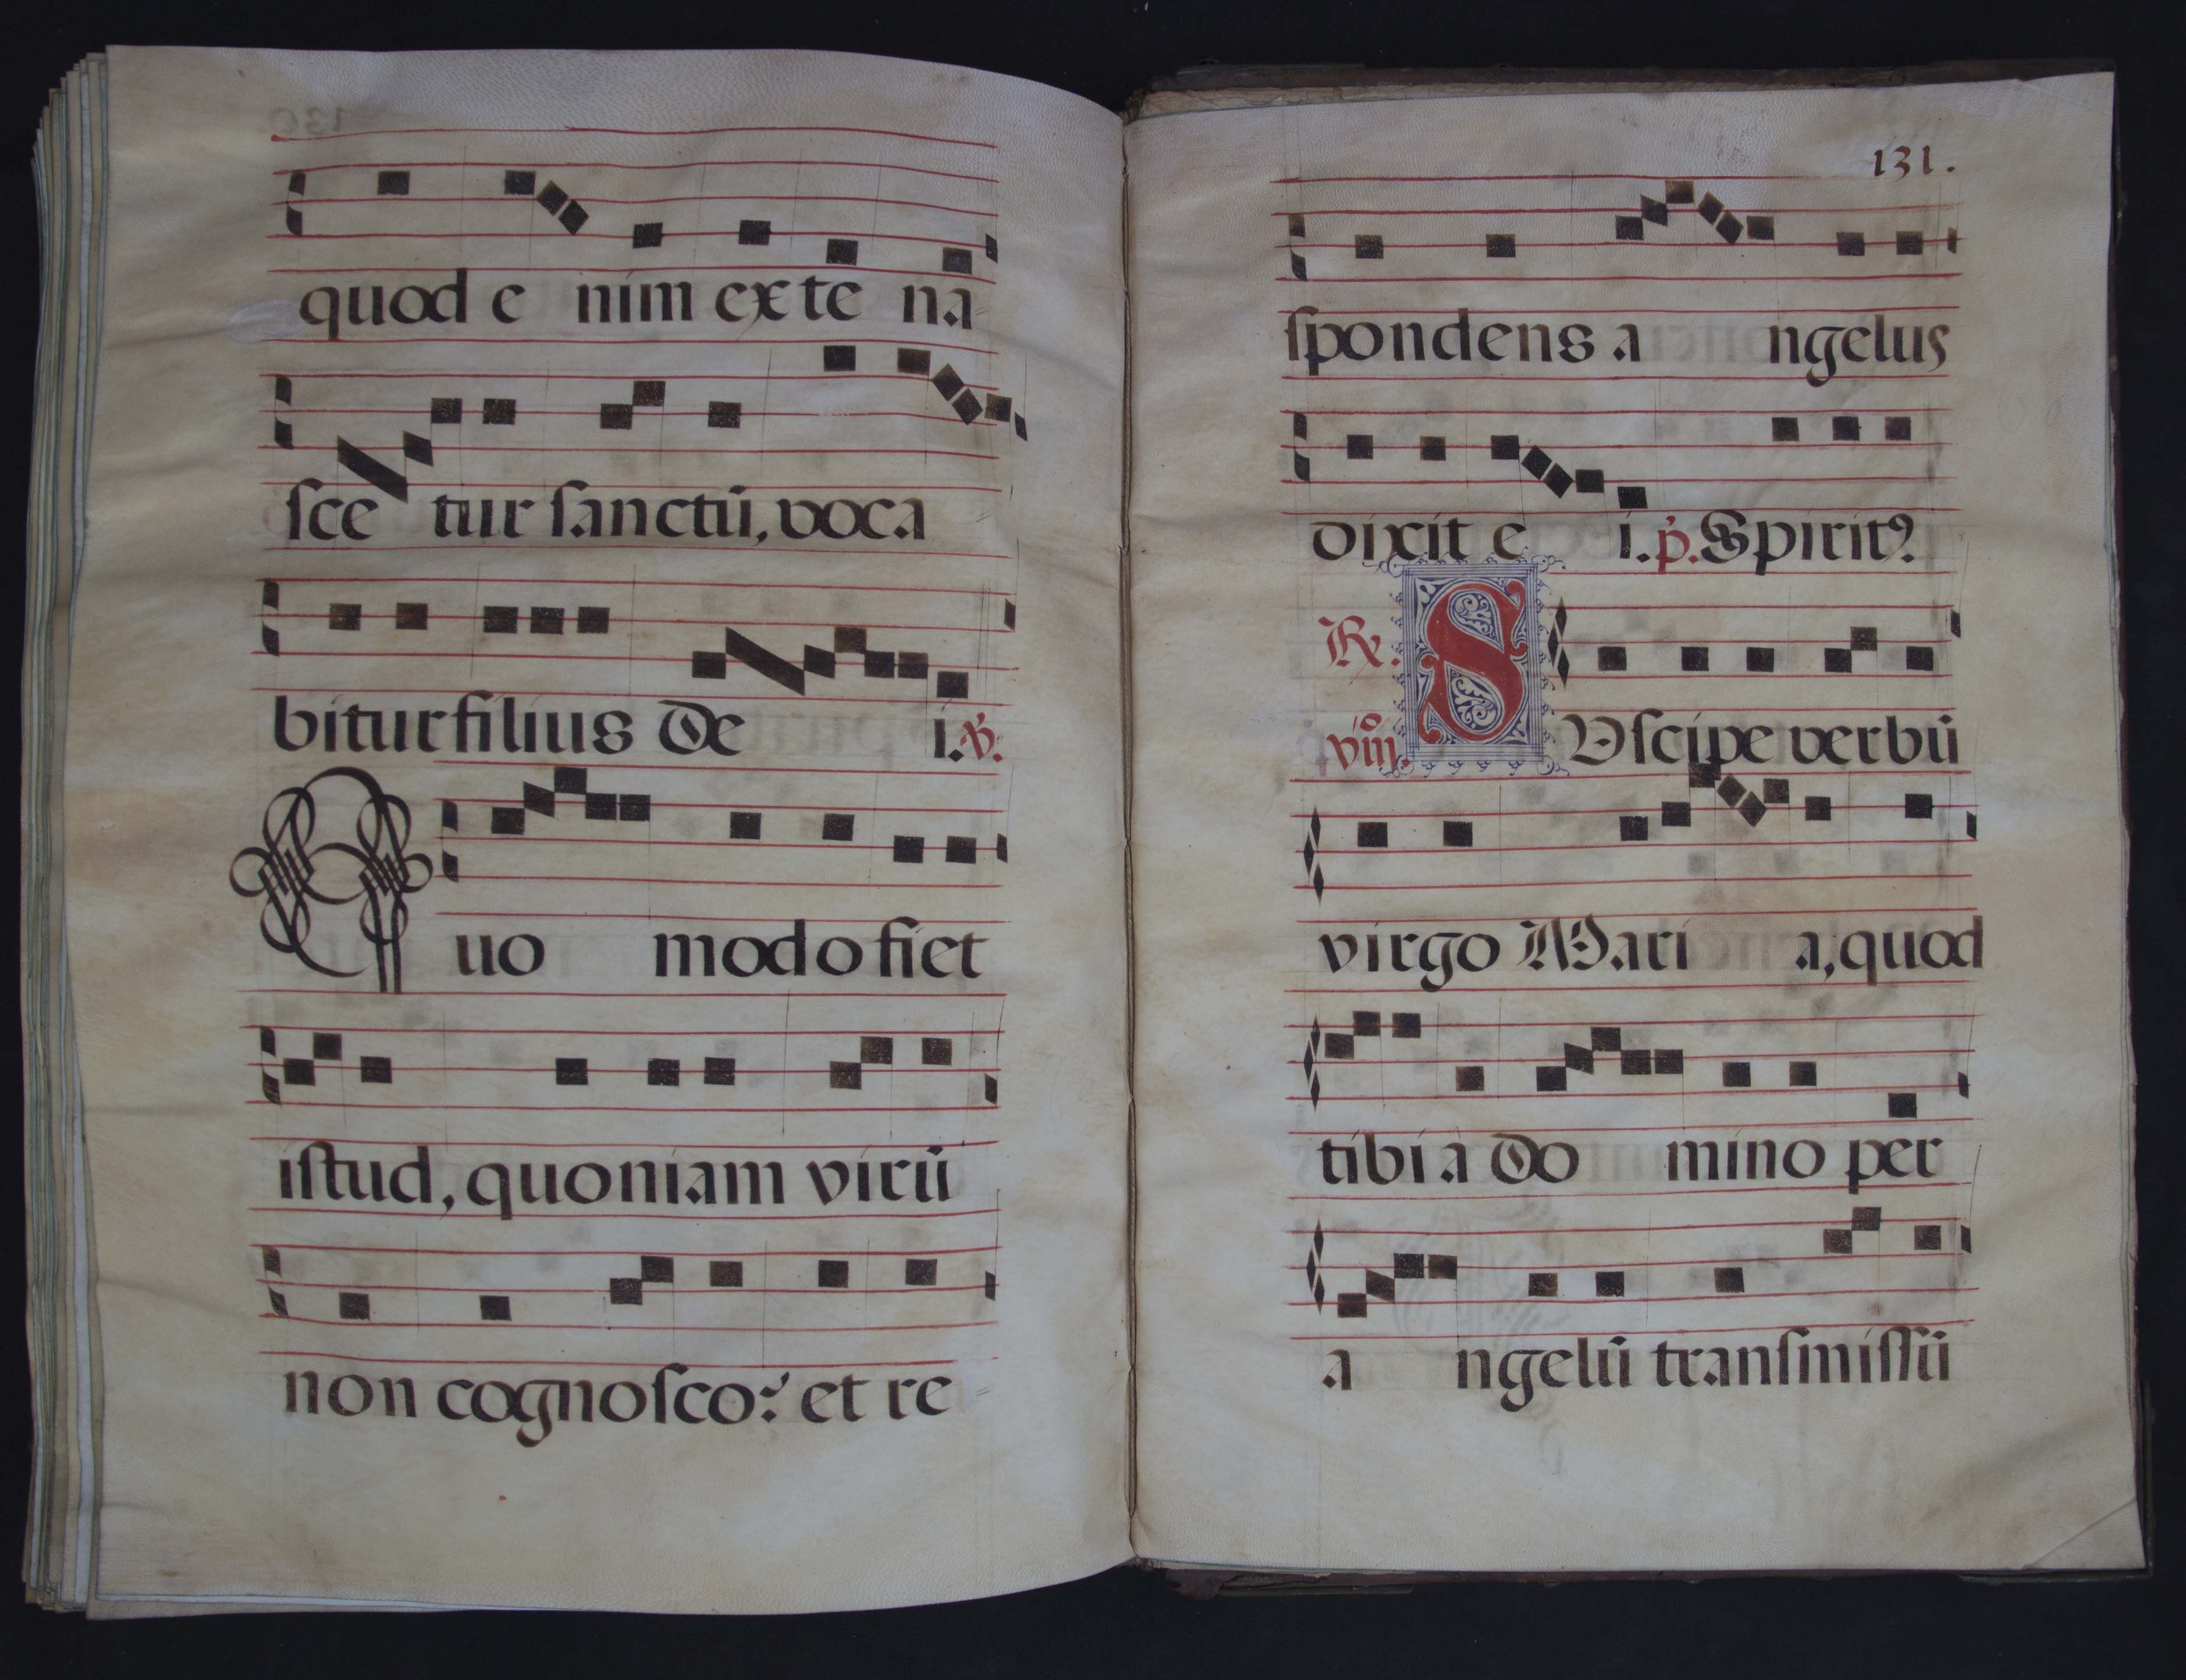 quod e nim ex te na
ſce tur ſanctū, voca
bitur filius de i. ℣.
Quo modo fiet
iſtud, quoniam virū
non cognoſco? et re
131.
ſpondens a ngelus
dixit e i. p̄. Spiritꝰ
℟. viijº SVſcipe verbū
virgo Mari a, quod
tibi à do mino per
a ngelū tranſmiſſū